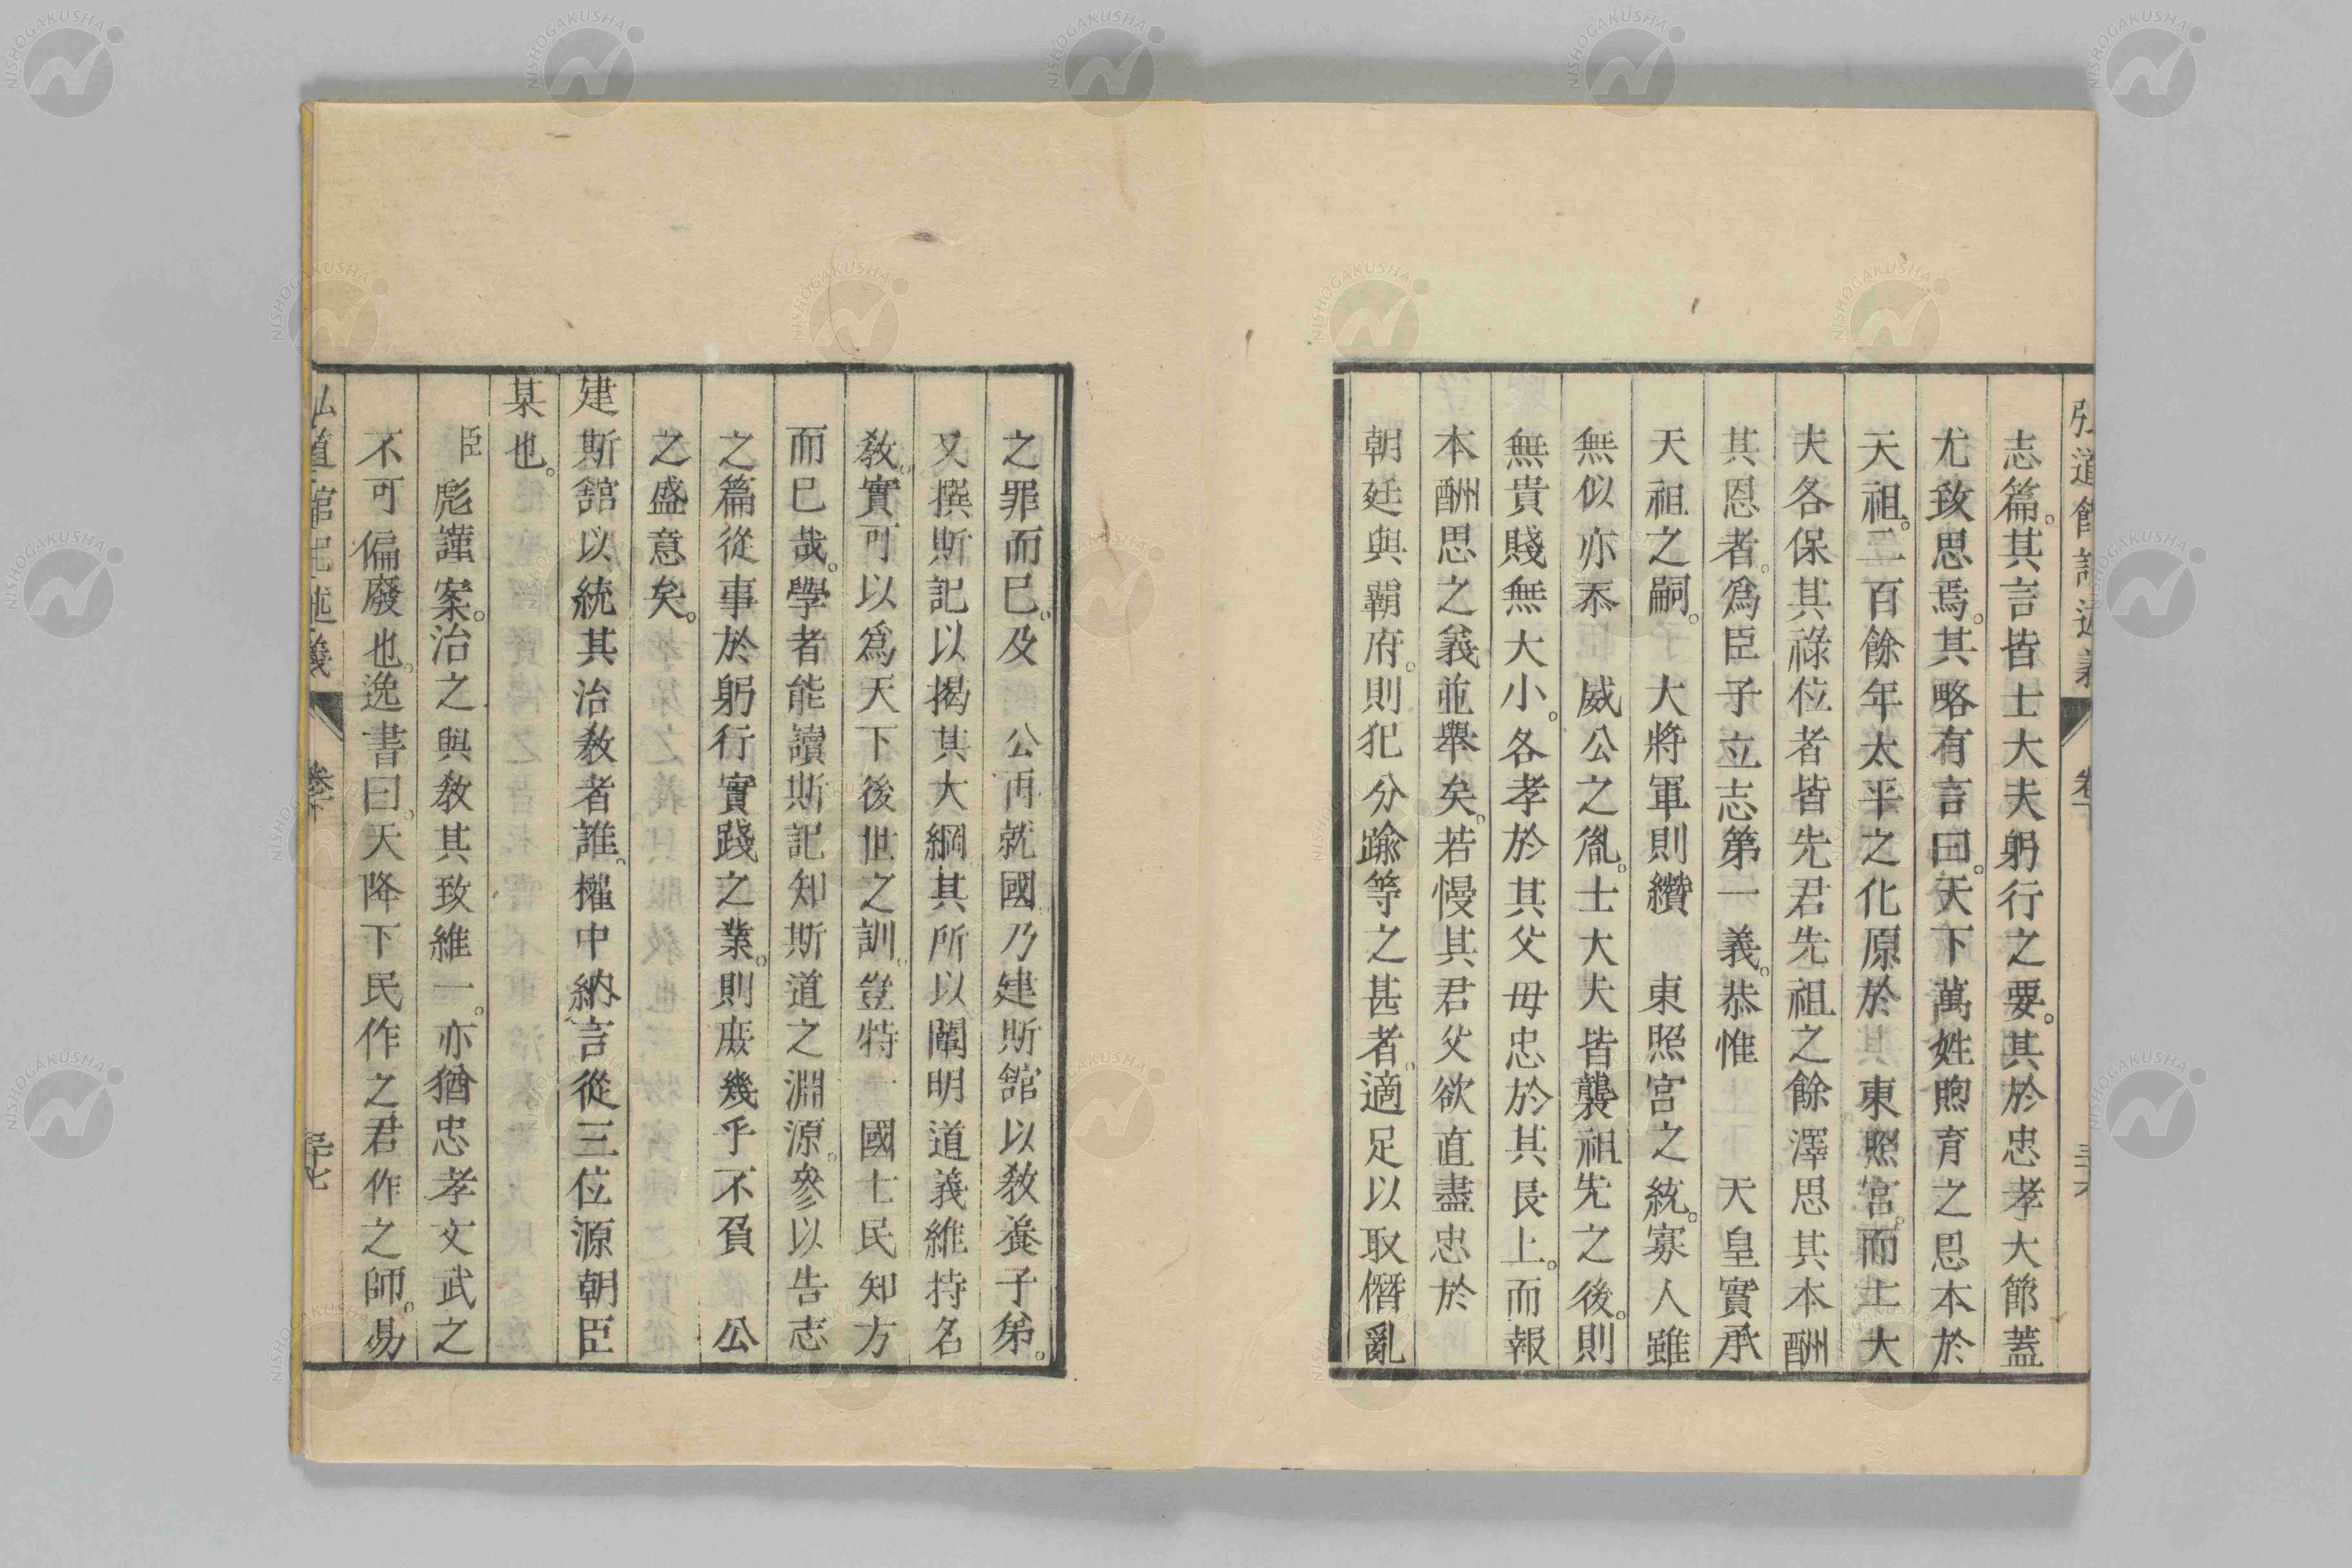 弘道館記述義
卷下
三十六
志篇。其言皆士大夫躬行之要。其於忠孝大節蓋
尤致思焉。其略有言曰。天下萬姓煦育之恩本於
天祖。二百餘年太平之化原於 東照宮。而士大
夫各保其祿位者皆先君先祖之餘澤思其本酬
其恩者。爲臣子立志第一義。恭惟 天皇實承
天祖之嗣。 大將軍則纘 東照宮之統。寡人雖
無似亦忝 威公之胤。士大夫皆襲祖先之後。則
無貴賤無大小。各孝於其父母忠於其長上。而報
本酬恩之義並舉矣。若慢其君父欲直盡忠於
朝廷與霸府。則犯分踰等之甚者。適足以取僭亂
之罪而已。及 公再就國乃建斯館以敎養子弟。
又撰斯記以揭其大綱其所以闡明道義維持名
敎。實可以爲天下後世之訓。豈特一國士民知方
而已哉。學者能讀斯記知斯道之淵源。參以告志
之篇從事於躬行實踐之業。則庶幾乎不負 公
之盛意矣。
建斯館以統其治敎者誰。權中納言從三位源朝臣
某也。
臣彪謹案。治之與敎其致維一。亦猶忠孝文武之
不可偏廢也。逸書曰。天降下民作之君作之師。易
弘道館記述義
卷下
三十七
NISHOGAKUSHA